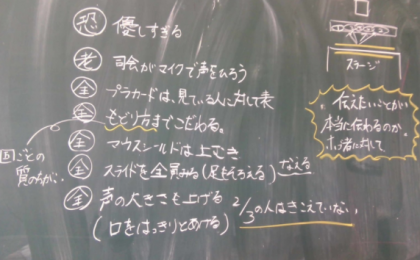 恐 優しすぎる
老 司会がマイクで声をひろう
全 プラカードは、見ている人に対して表
全 もどり方までこだわる。
全 マウスシールドは上むき
全 スライドを全員みる(足もそろえる) なえる
全 声の大きさを上げる 2/3の人はきこえていない
(口をはっきりとあける)
ごとの
質のちがい
ステージ
伝えたいことが
本当に伝わるのか。
対して